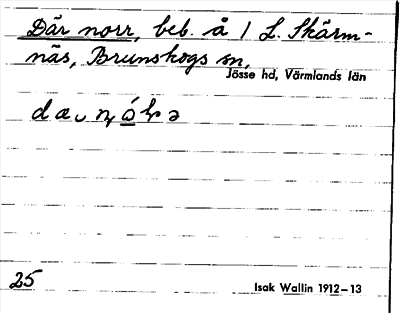 Där norr, beb. å 1 L. Skärm-
näs, Brunskogs sn,
Jösse hd, Värmlands län
25
Isak Wallin 1912–13